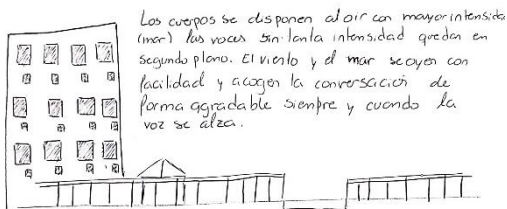 Los cuerpos se disponen al oir con mayor intensida
(mar) las voces sin tanta intensidad quedan en
segundo plano. El viento y el mar se oyen con
facilidad y acogen la conversación de
forma agradable siempre y cuando la
voz se alza.